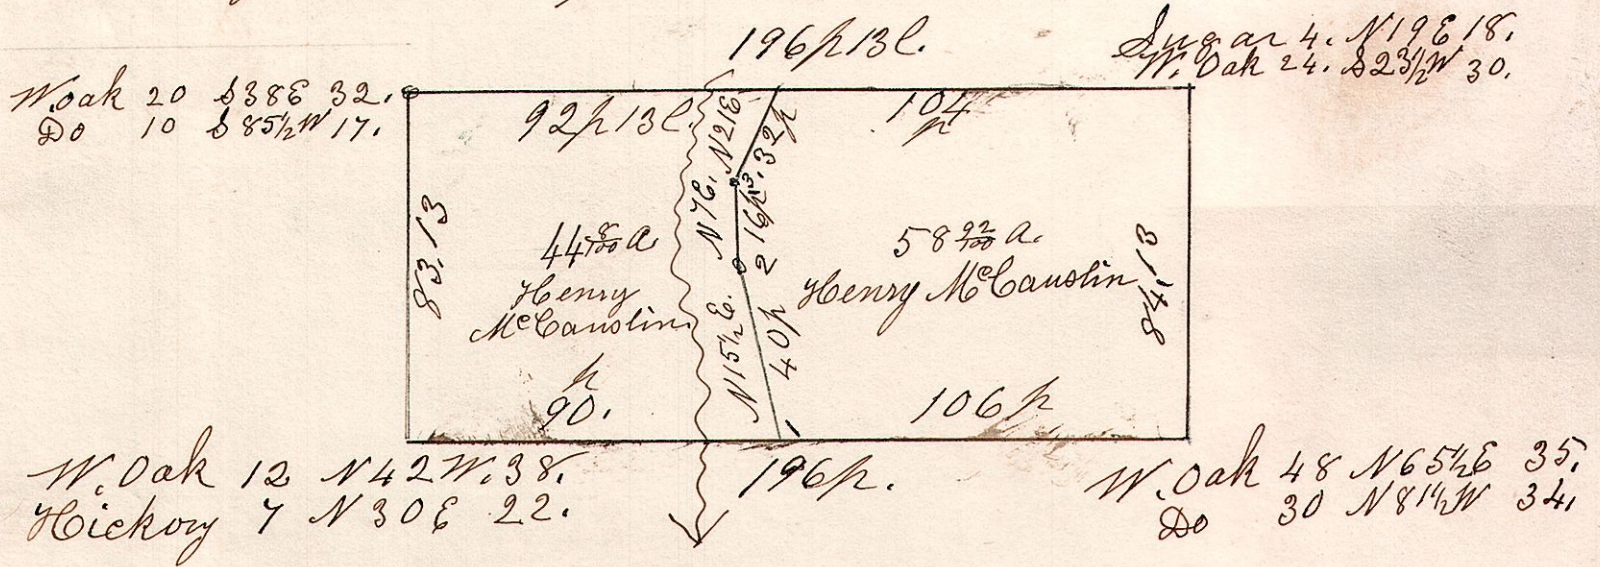 196p 13l.
Sugar 4. N19E 18.
W. Oak 24. S23½W 30.
W. oak 20 S38E 32.
Do 10 S85½W 17.
92p 13l.
104
p
N21E.
32p
N7E.
2 16p.13
N15½E.
40p
1
83.13
44 8/100 a.
Henry
McCauslin.
p
90.
58 92/100 a.
Henry McCauslin
84.13
106p
196p.
W. Oak 12 N42W. 38.
Hickory 7 N30E 22.
W. Oak 48 N65½E 35.
Do 30 N81½W 34.